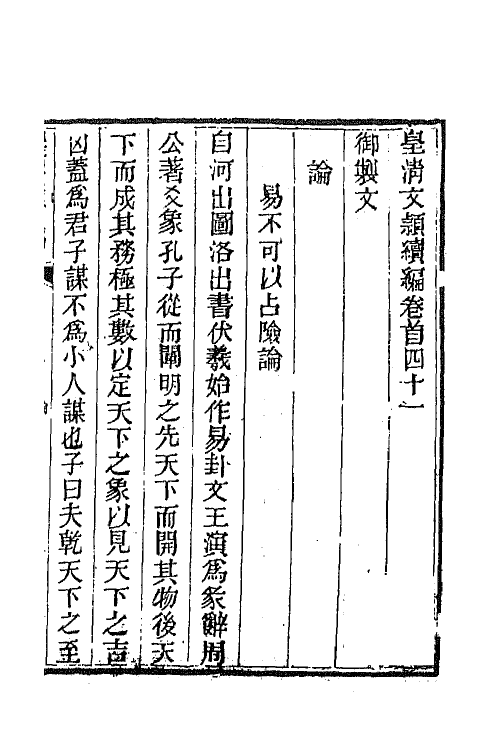 皇淸文穎續編卷首四十一
御製文
論
易不可以占險論
自河出圖洛出書伏羲始作易卦文王演爲彖辭周
公著爻象孔子從而闡明之先天下而開其物後天
下而成其務極其數以定天下之象以見天下之吉
凶蓋爲君子謀不爲小人謀也子曰夫乾天下之至